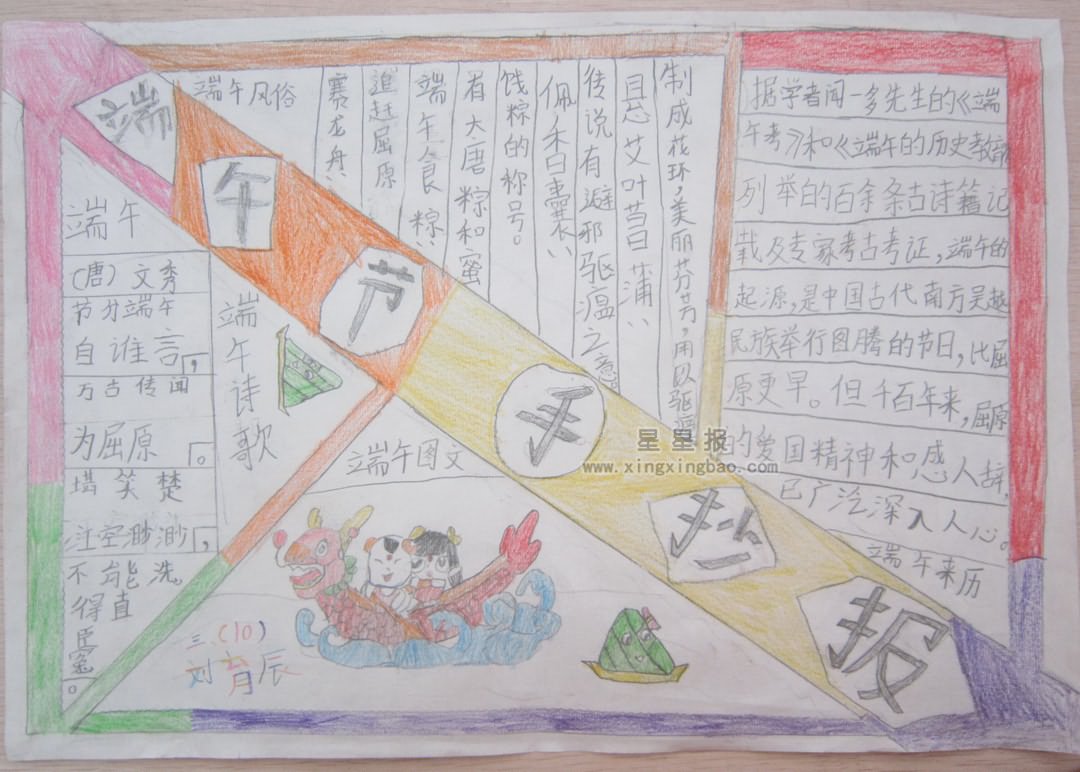 端午节手抄报
端午风俗
赛龙舟
追赶屈原
端午食粽、
有大唐粽和蜜
饯粽的称号。
佩香囊、
传说有避邪驱温之意
悬艾叶菖蒲、
制成花环,美丽芬芳,用以驱
据学者闻一多先生的《端
午考》和《端午的历史教
列举的百余条古诗籍记
载及专家考古考证,端午的
起源,是中国古代南方吴越
民族举行图腾的节日,比屈
原更早。但千百年来,屈原
的爱国精神和感人
已广泛深入人心。
端午来历
端午
(唐)文秀
节分端午
自谁言,
万古传闻
为屈原。
堪笑楚
江空渺渺,
不能洗
得直
臣冤。
端午诗歌
端午图文
三(10)
刘育辰
星星报
www.xingxingbao.com